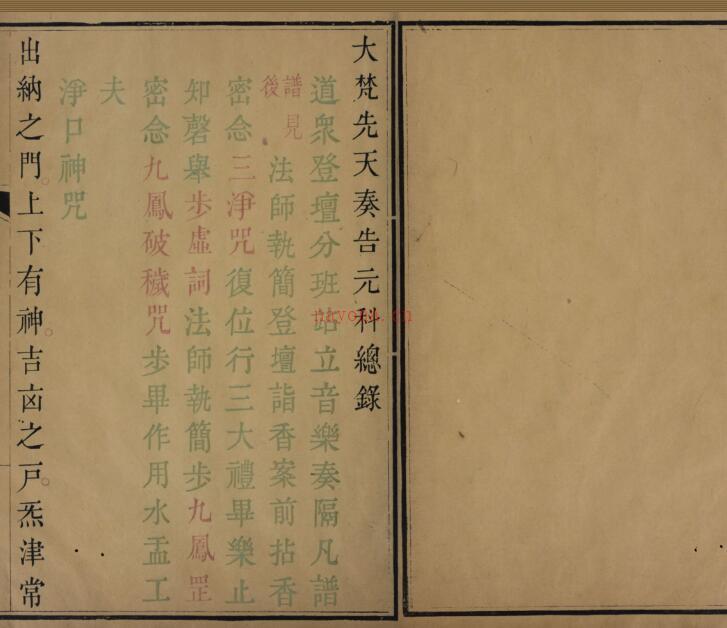 大梵先天奏告元科總錄
道衆登壇分班站立音樂奏隔凡譜
譜見後法師執簡登壇詣香案前拈香
密念三淨咒復位行三大禮畢樂止
知磬舉步虛詞法師執簡步九鳳罡
密念九鳳破穢咒步畢作用水盂工
夫
淨口神咒
出納之門。上下有神。吉凶之戶。炁津常